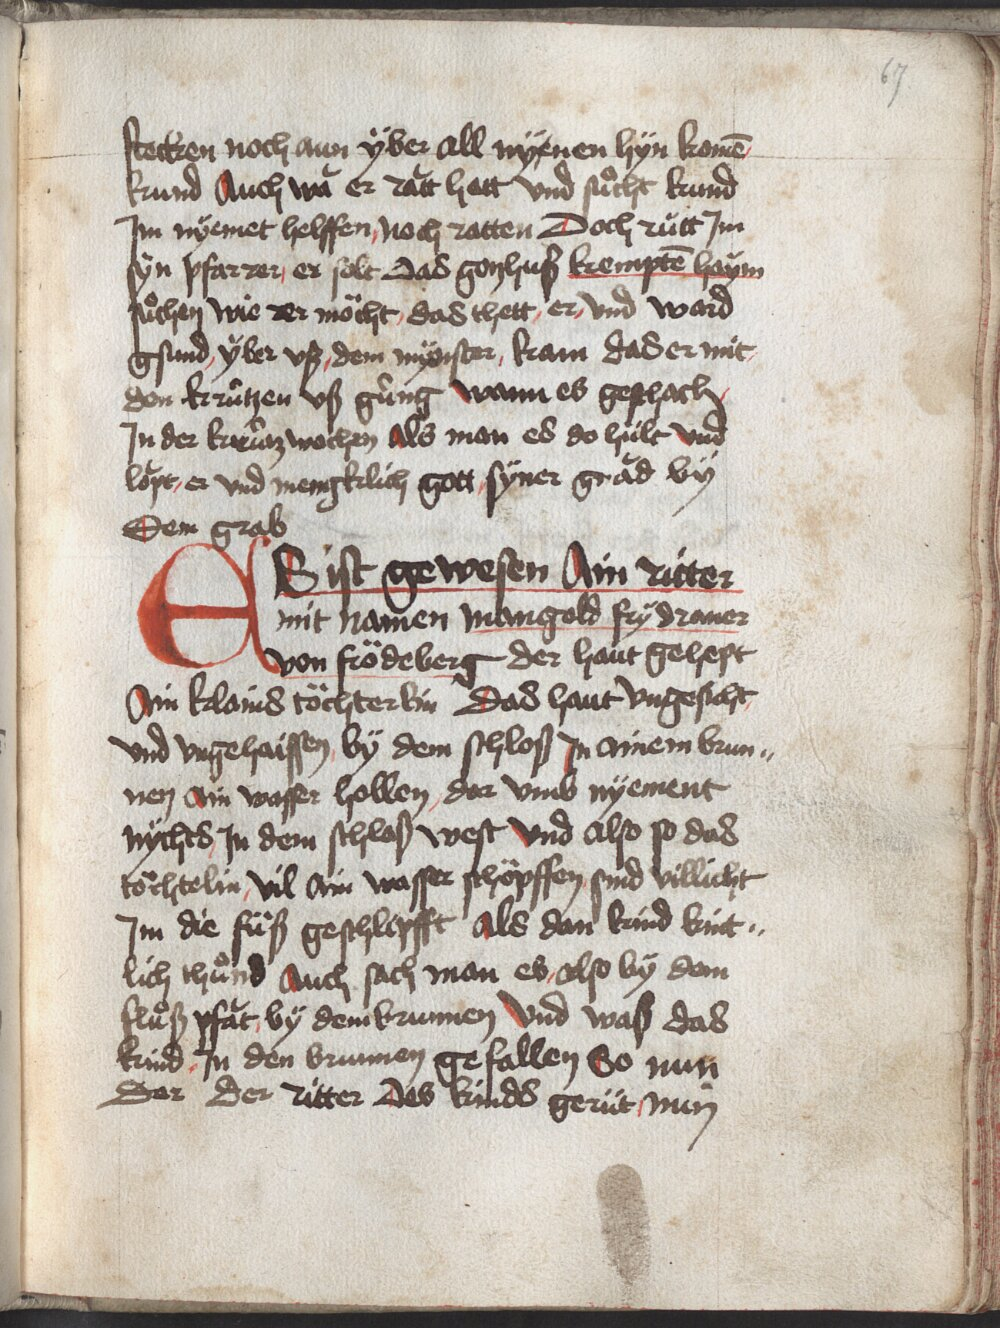 67
stecken noch aun yͤber all myͤnen hyn komē
kund Auch wa er ratt hatt vnd suͦcht kund
Im nyemet helffen noch ratten Doch rutt Im
syn pfarrer er solt das gotzhuß kemptē haym
suͦchen wie er moͤcht das thett er vnd ward
gsund yͤber vß dem mynster kam das er mit
den kruͤtzen vß guͤng wann es geschach
In der kruͤtzwochen Als man es do hielt vnd
lopt er vnd mengklich gott syner grad by
Dem grab
ES ist gewesen Ain ritter
mit Namen mangold frydrauer
von froͤdeberg der haut gehept
Ain klains toͤchterlin Das haut vngesicht
vnd vngehaissen by dem schloß In ainem brun„
nen Ain wasser hollen dar vmb nyement
nychts In dem schloß west Vnd also so das
toͤchtelin vil Ain wasser schoͤpffen sind villicht
Im die fuͤß geschlipfft Als dan kind kint„
lich thuͦnd Auch sach man es also by dem
fluͦß pfat by dem brunnen Vnd waß das
kind In den brunnen gefallen So nun
Der Der ritter Des kinds geruͤt nun